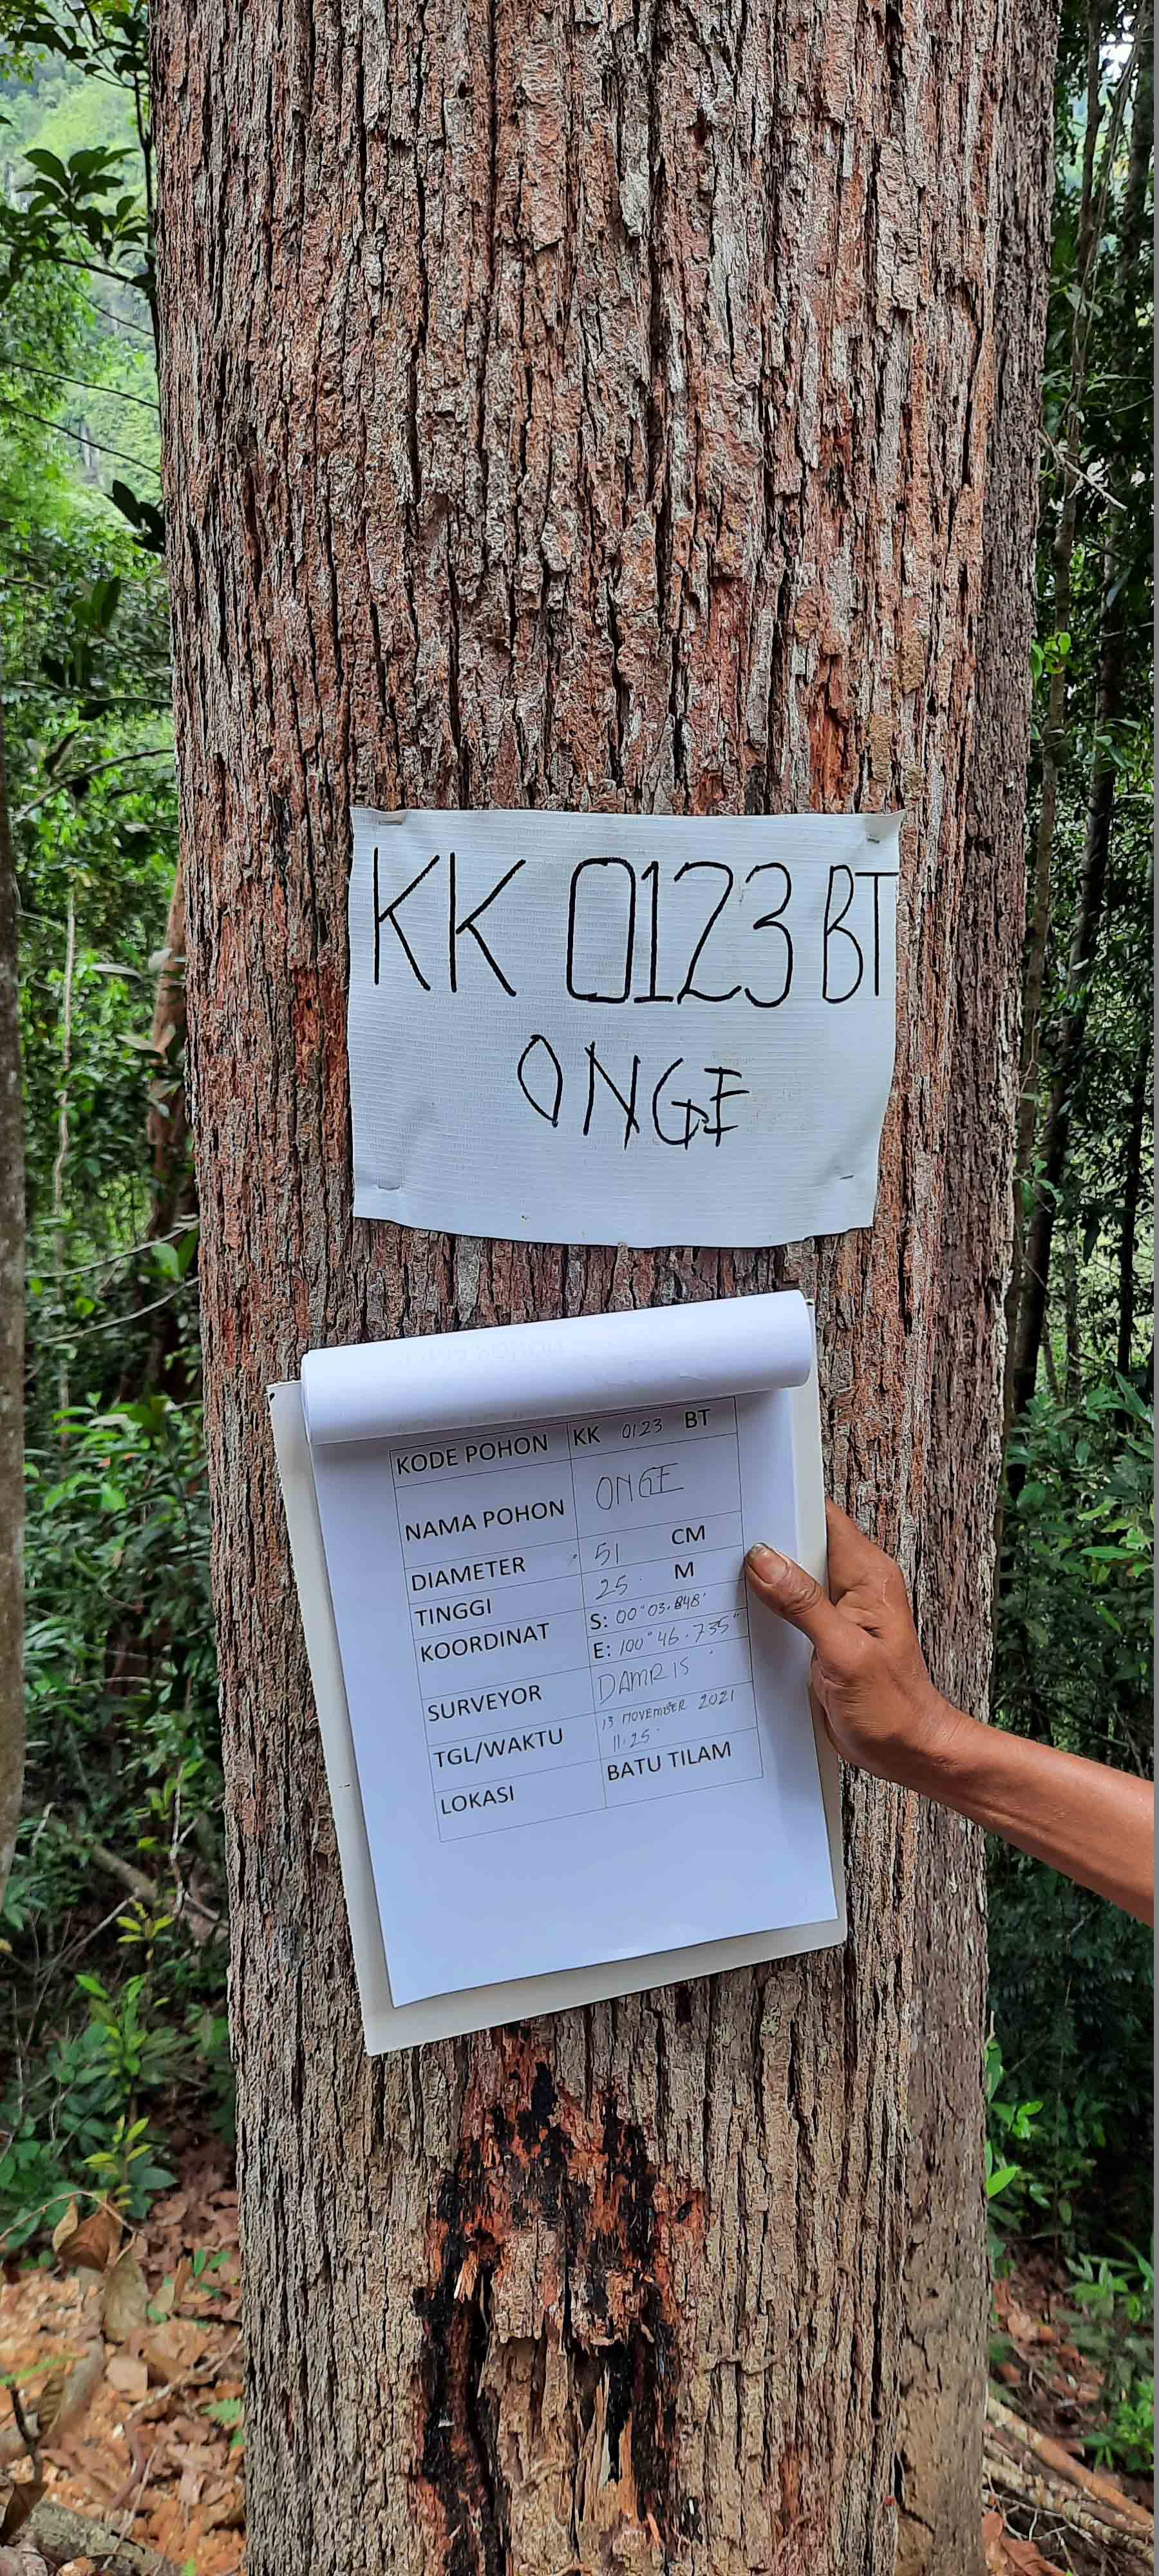 KK 0123 BT
ONGE
KODE POHON KK 0123 BT
NAMA POHON ONGE
DIAMETER 51 CM
TINGGI 25 M
KOORDINAT S: 00°03.848'
E: 100°46.735"
SURVEYOR DAMRIS
TGL/WAKTU 13 NOVEMBER 2021
11.25
LOKASI BATU TILAM